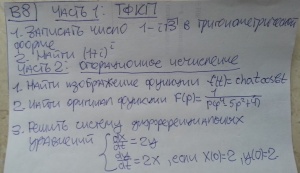 В8 Часть 1: ТФКП
1. Записать число 1-i√3 в тригонометрической
форме
2. Найти (1+i)^i
Часть 2: операционное исчисление
1. Найти изображение функции f(t)=chat cosbt
2. Найти оригинал функции F(p)=1/(p(p⁴+5p²+4))
3. Решить систему дифференциальных
уравнений { dx/dt = 2y
dy/dt = 2x, если x(0)=2, y(0)=2